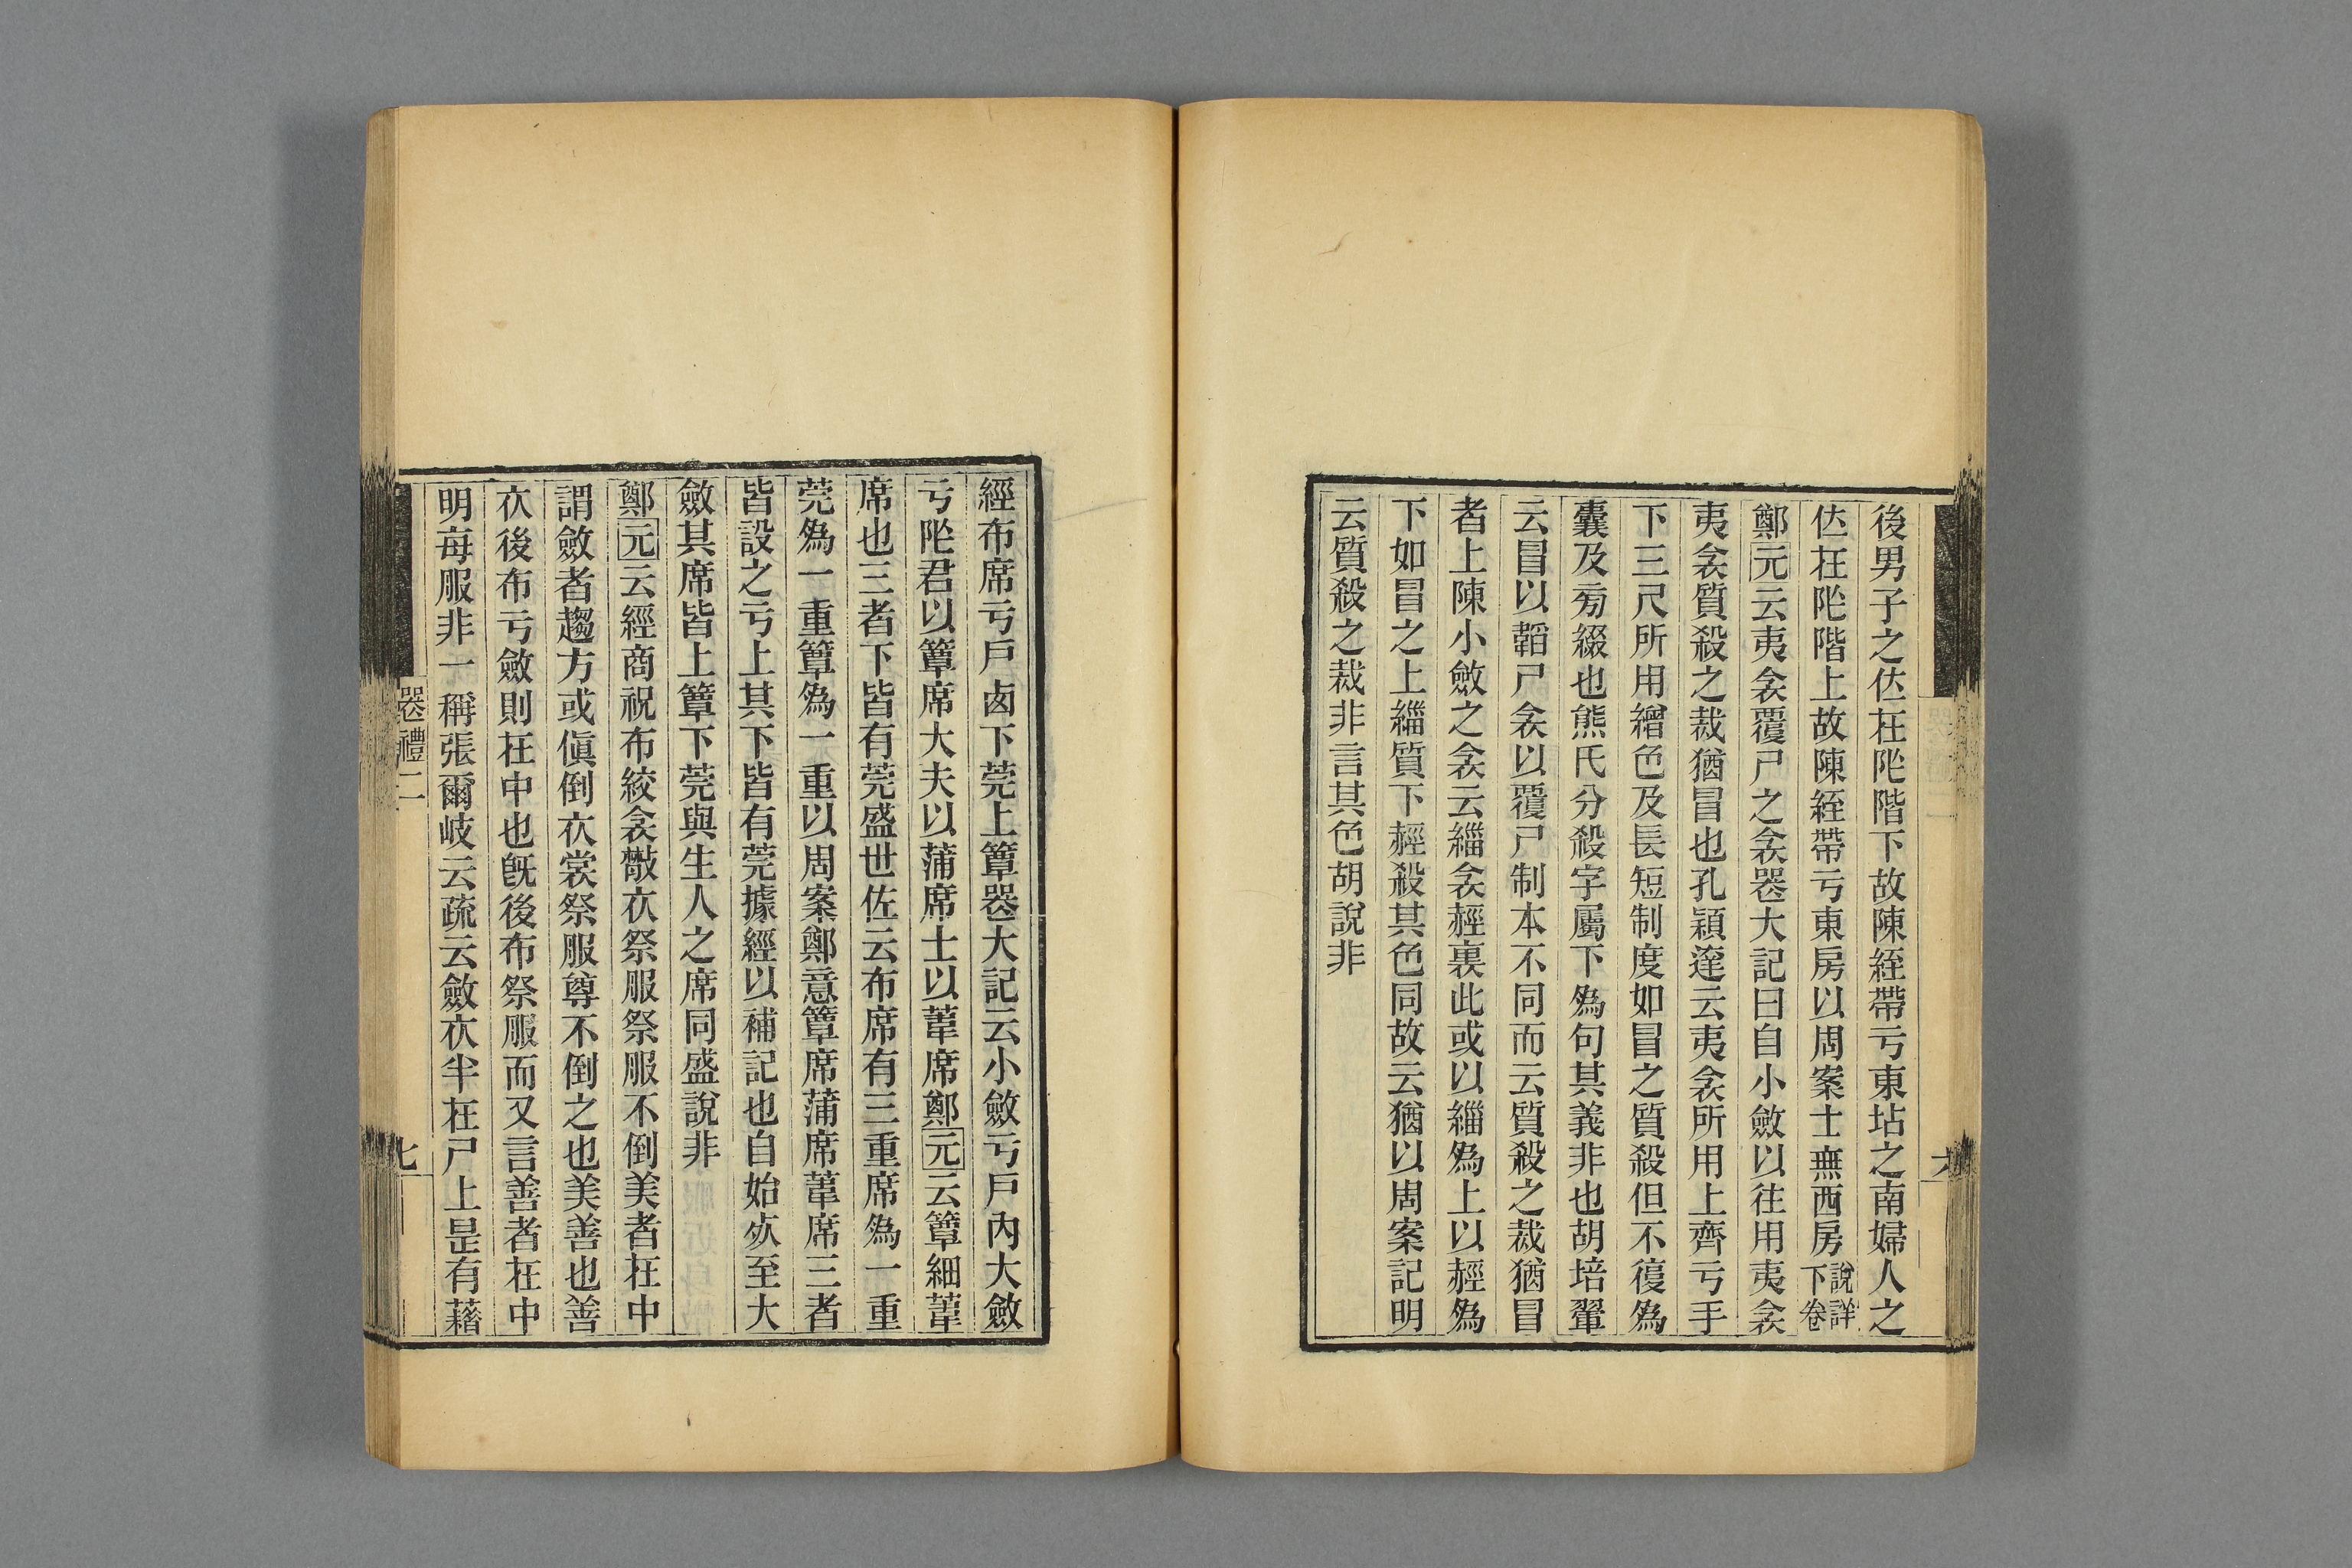 後男子之位在阼階下故陳絰帶亏東坫之南婦人之
位在阼階上故陳絰帶亏東房以周案士無西房說詳下卷
鄭元云夷衾覆尸之衾喪大記曰自小斂以往用夷衾
夷衾質殺之裁猶冒也孔穎達云夷衾所用上齊亏手
下三尺所用繒色及長短制度如冒之質殺但不復為
囊及旁綴也熊氏分殺字屬下為句其義非也胡培翬
云冒以韜尸衾以覆尸制本不同而云質殺之裁猶冒
者上陳小斂之衾云緇衾赬裏此或以緇為上以赬為
下如冒之上緇質下赬殺其色同故云猶以周案記明
云質殺之裁非言其色胡說非
六
經布席亏戶內下莞上簟喪大記云小斂亏戶內大斂
亏阼君以簟席大夫以蒲席士以葦席鄭元云簟細葦
席也三者下皆有莞盛世佐云布席有三重席為一重
莞為一重簟為一重以周案鄭意簟席蒲席葦席三者
皆設之亏上其下皆有莞據經以補記也自始死至大
斂其席皆上簟下莞與生人之席同盛說非
鄭元云經商祝布絞衾散衣祭服祭服不倒美者在中
謂斂者趨方或傎倒衣裳祭服尊不倒之也美善也善
衣後布亏斂則在中也旣後布祭服而又言善者在中
明每服非一稱張爾岐云疏云斂衣半在尸上是有藉
喪禮二
七